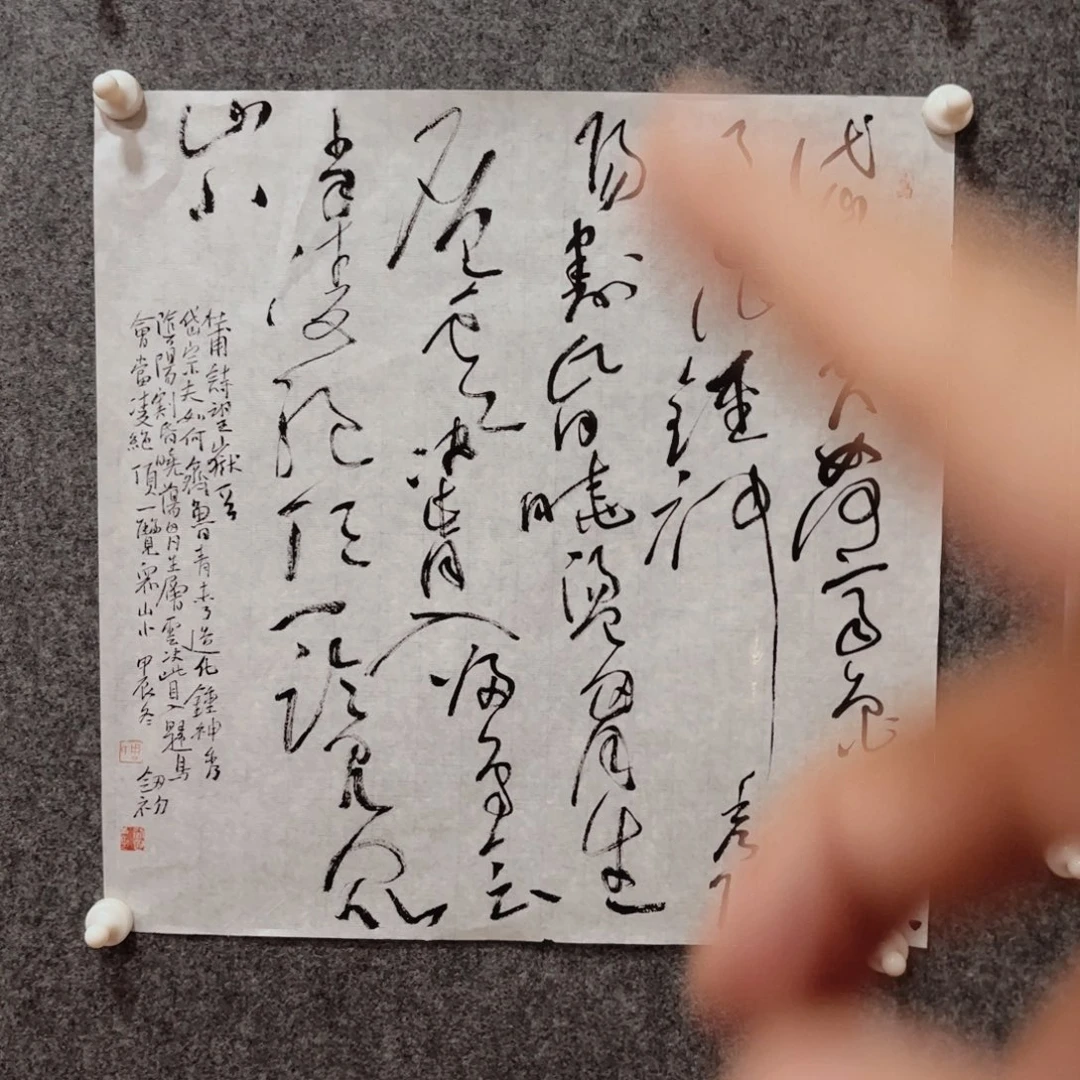 岱
如何齊魯
了化鍾神秀
陽割昏曉盪胸生
層雲決眥入歸鳥會
當凌絕頂一覽眾
山小
杜甫詩望嶽
岱宗夫如何齊魯青未了造化鍾神秀
陰陽割昏曉蕩胸生層雲決眥入歸鳥
會當凌絕頂一覽眾山小 甲辰冬